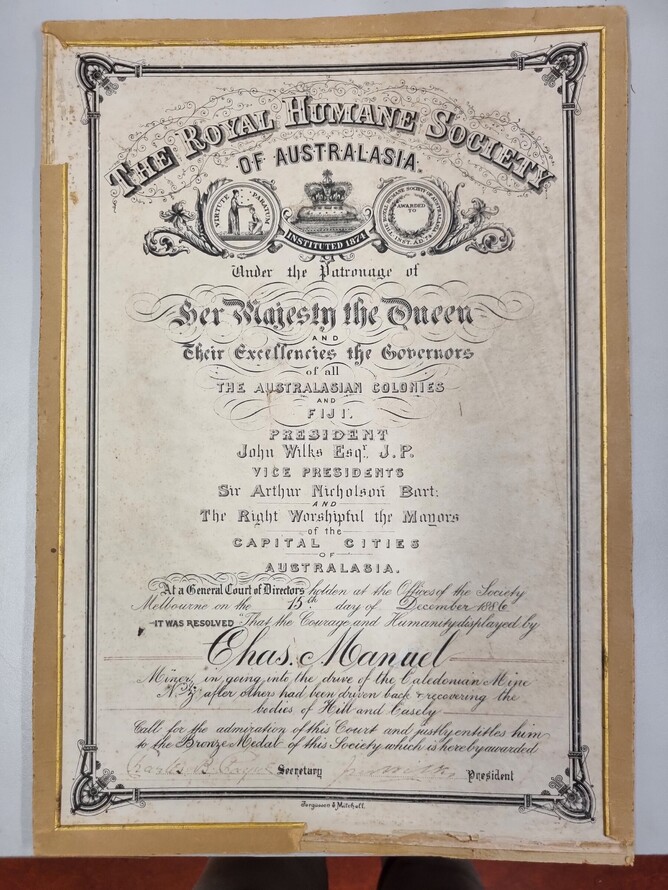 THE ROYAL HUMANE SOCIETY
OF AUSTRALASIA.
VIRTUTE PARATUM
INSTITUTED 1874
AWARDED
TO
Under the Patronage of
Her Majesty the Queen
AND
Their Excellencies the Governors
of all
THE AUSTRALASIAN COLONIES
AND
FIJI.
PRESIDENT
John Wilks Esqr. J.P.
VICE PRESIDENTS
Sir Arthur Nicholson Bart:
AND
The Right Worshipful the Mayors
of the
CAPITAL CITIES
OF
AUSTRALASIA.
At a General Court of Directors holden at the Offices of the Society
Melbourne on the 15th day of December 1886
IT WAS RESOLVED That the Courage and Humanity displayed by
Chas. Manuel
Miner, in going into the drive of the Caledonian Mine
N.Z. after others had been driven back & recovering the
bodies of Hill and Casely
Call for the admiration of this Court and justly entitles him
to the Bronze Medal of this Society which is hereby awarded
Secretary President
Fergusson & Mitchell.